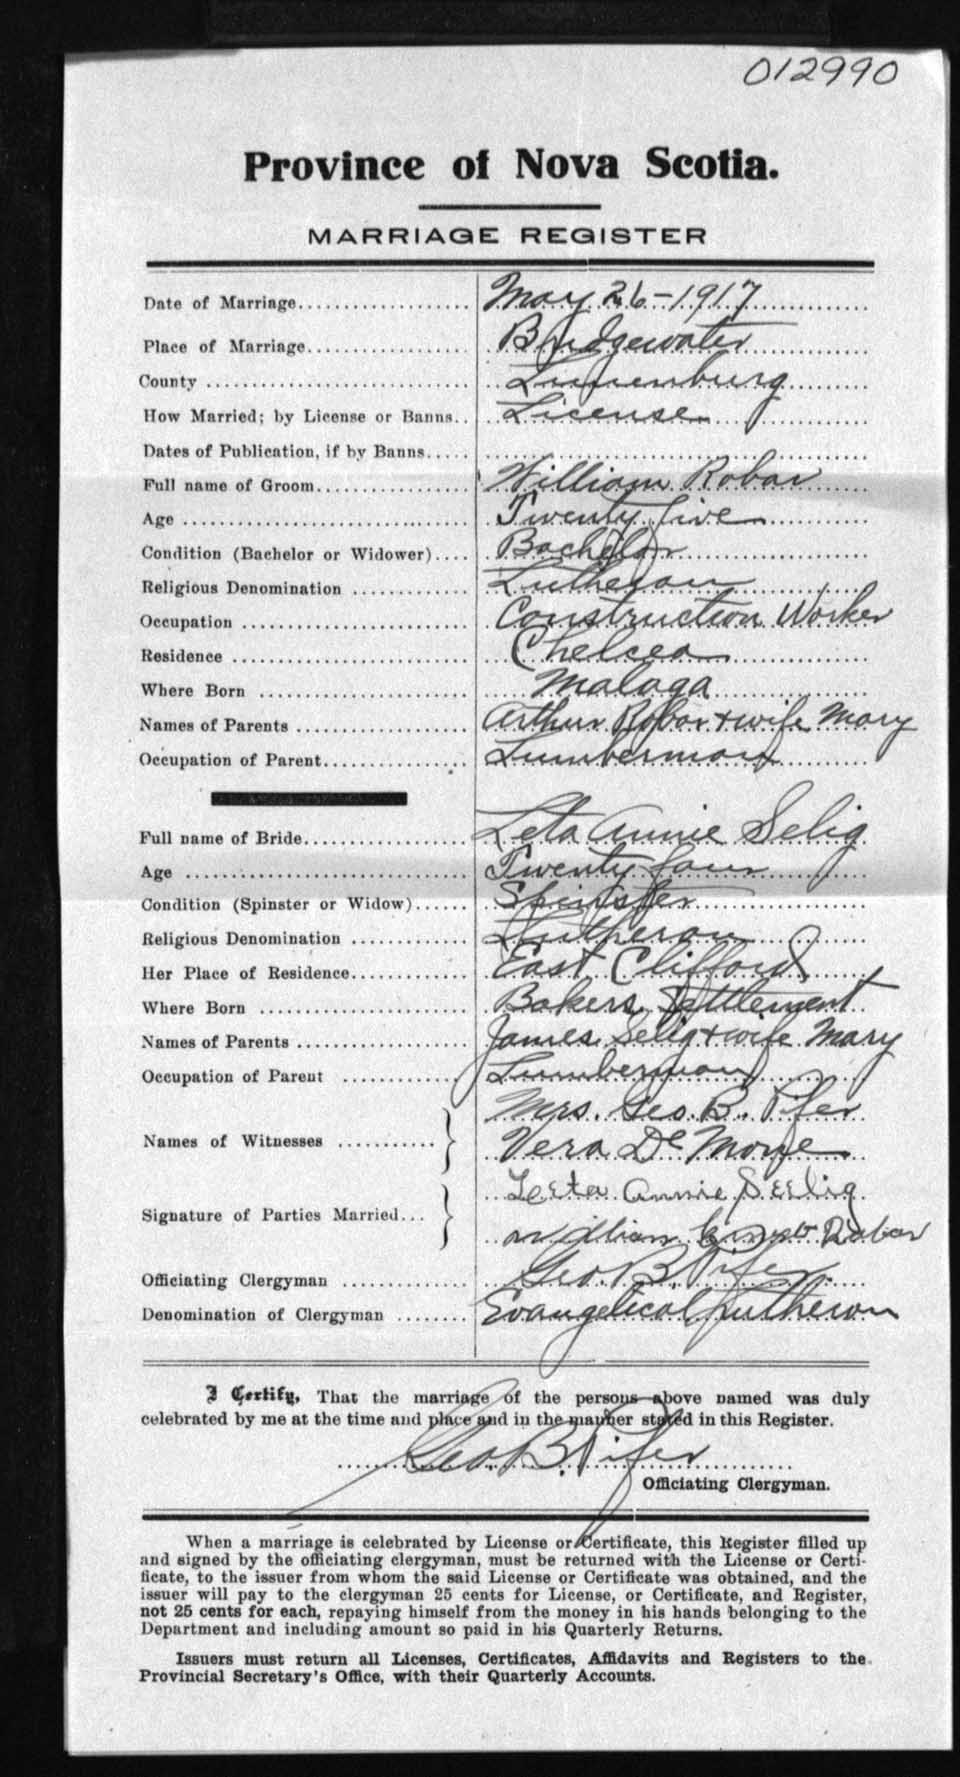 012990
Province of Nova Scotia.
MARRIAGE REGISTER
Date of Marriage................... May 26-1917
Place of Marriage.................. Bridgewater
County ............................. Lunenburg
How Married; by License or Banns.. License
Dates of Publication, if by Banns.....
Full name of Groom................. William Robar
Age ................................ Twenty five
Condition (Bachelor or Widower).... Bachelor
Religious Denomination ............. Lutheran
Occupation ......................... Construction Worker
Residence .......................... Chelcea
Where Born ......................... Malaga
Names of Parents ................... Arthur Robar + wife Mary
Occupation of Parent................ Lumberman
Full name of Bride.................. Leta Annie Selig
Age ................................ Twenty four
Condition (Spinster or Widow)...... Spinster
Religious Denomination ............. Lutheran
Her Place of Residence............. East Clifford
Where Born ......................... Bakers Settlement
Names of Parents ................... James Selig + wife Mary
Occupation of Parent ............... Lumberman
Mrs. Geo. B. Pifer
Names of Witnesses ........... } Vera De Mone
Leeta Annie Seelig
Signature of Parties Married... } William Ernest Robar
Officiating Clergyman .............. Geo. B. Pifer
Denomination of Clergyman ........ Evangelical Lutheran
I Certify, That the marriage of the persons above named was duly
celebrated by me at the time and place and in the manner stated in this Register.
Geo B. Pifer
Officiating Clergyman.
When a marriage is celebrated by License or Certificate, this Register filled up
and signed by the officiating clergyman, must be returned with the License or Certi-
ficate, to the issuer from whom the said License or Certificate was obtained, and the
issuer will pay to the clergyman 25 cents for License, or Certificate, and Register,
not 25 cents for each, repaying himself from the money in his hands belonging to the
Department and including amount so paid in his Quarterly Returns.
Issuers must return all Licenses, Certificates, Affidavits and Registers to the
Provincial Secretary's Office, with their Quarterly Accounts.